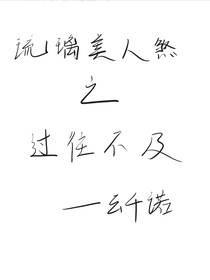 琉璃美人煞
之
过往不及
—云千诺